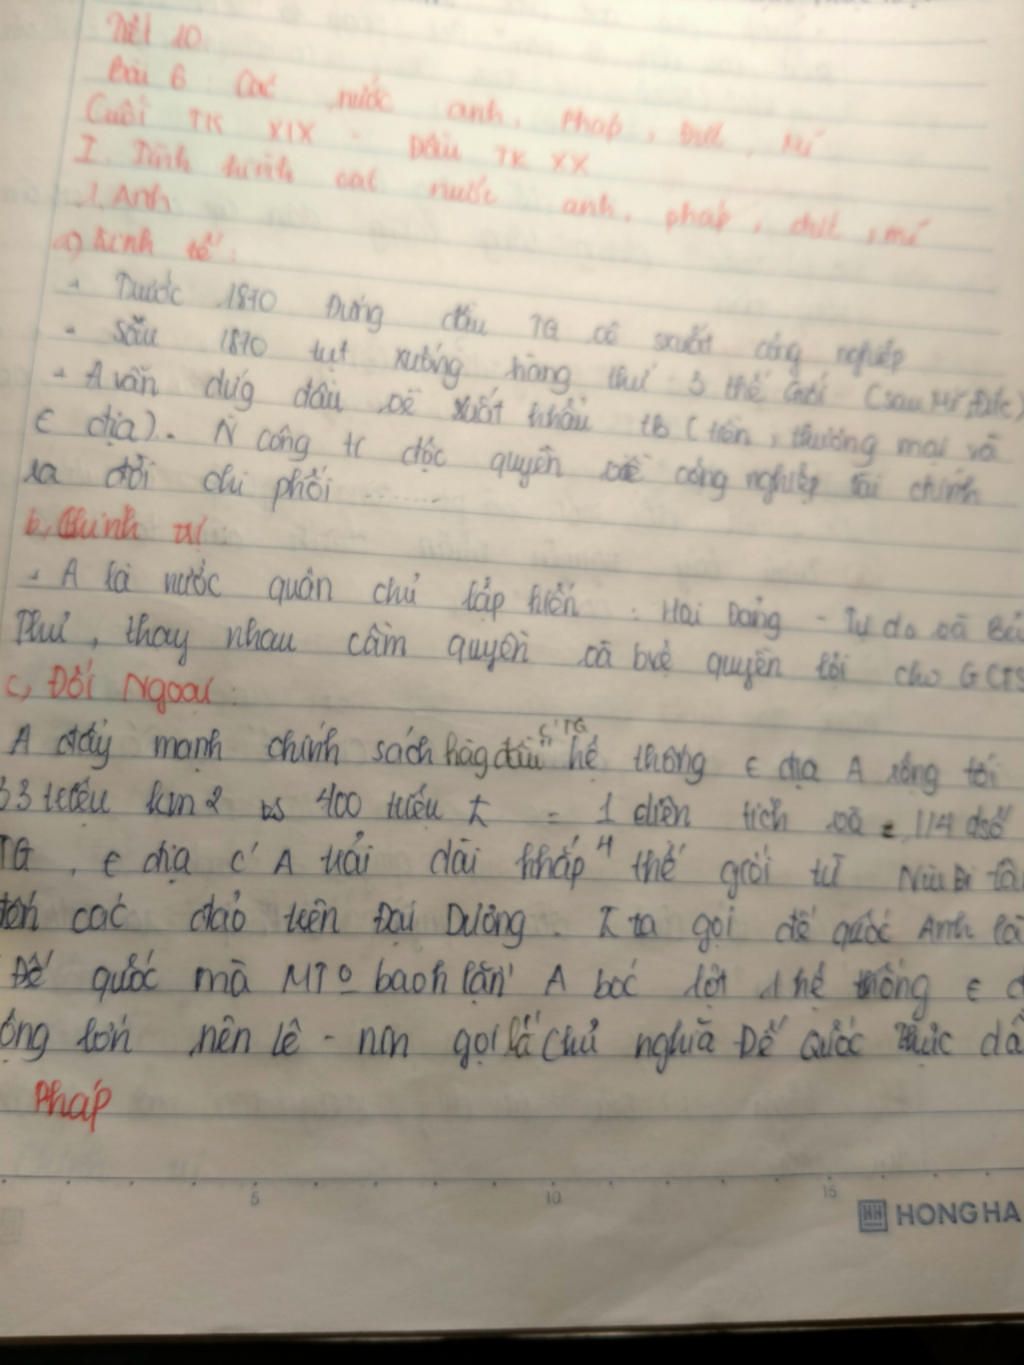 Tiết 10
Bài 6 Các nước anh, Pháp, Đức, Mĩ
Cuối TK XIX - Đầu TK XX
I. Tình hình các nước anh, pháp, đức, mĩ
1. Anh
a) Kinh tế:
- Trước 1870 Đứng đầu TG về sxuất công nghiệp
- Sau 1870 tụt xuống hàng thứ 3 thế Giới (sau Mĩ, Đức)
- A vẫn đứg đầu về xuất khẩu tb (tiền, thương mại và
є địa). N công ti độc quyền về công nghiệp tài chính
ra đời chi phối ........
b, Chính trị
- A là nước quân chủ lập hiến: Hai Đảng - Tự do và Bả
Thủ, thay nhau cầm quyền và bvệ quyền lợi cho GCTS
c, Đối Ngoại:
c' TG
A đẩy mạnh chính sách hàg đầu hệ thống є địa A rộng tới
33 triệu km2 vs 400 triệu = 1 diện tích và = 1/4 dsố
4
TG, є địa c' A trải dài khắp thế giới từ Niu Di lân
đến các đảo trên Đại Dương. ta gọi đế quốc Anh là
Đế quốc mà MT o baoh lặn" A bóc lột 1 hệ thống є đ
ộng lớn nên lê - nin gọi là "Chủ nghĩa Đế Quốc thực dâ
Pháp
5 10 15
HH HONG HA